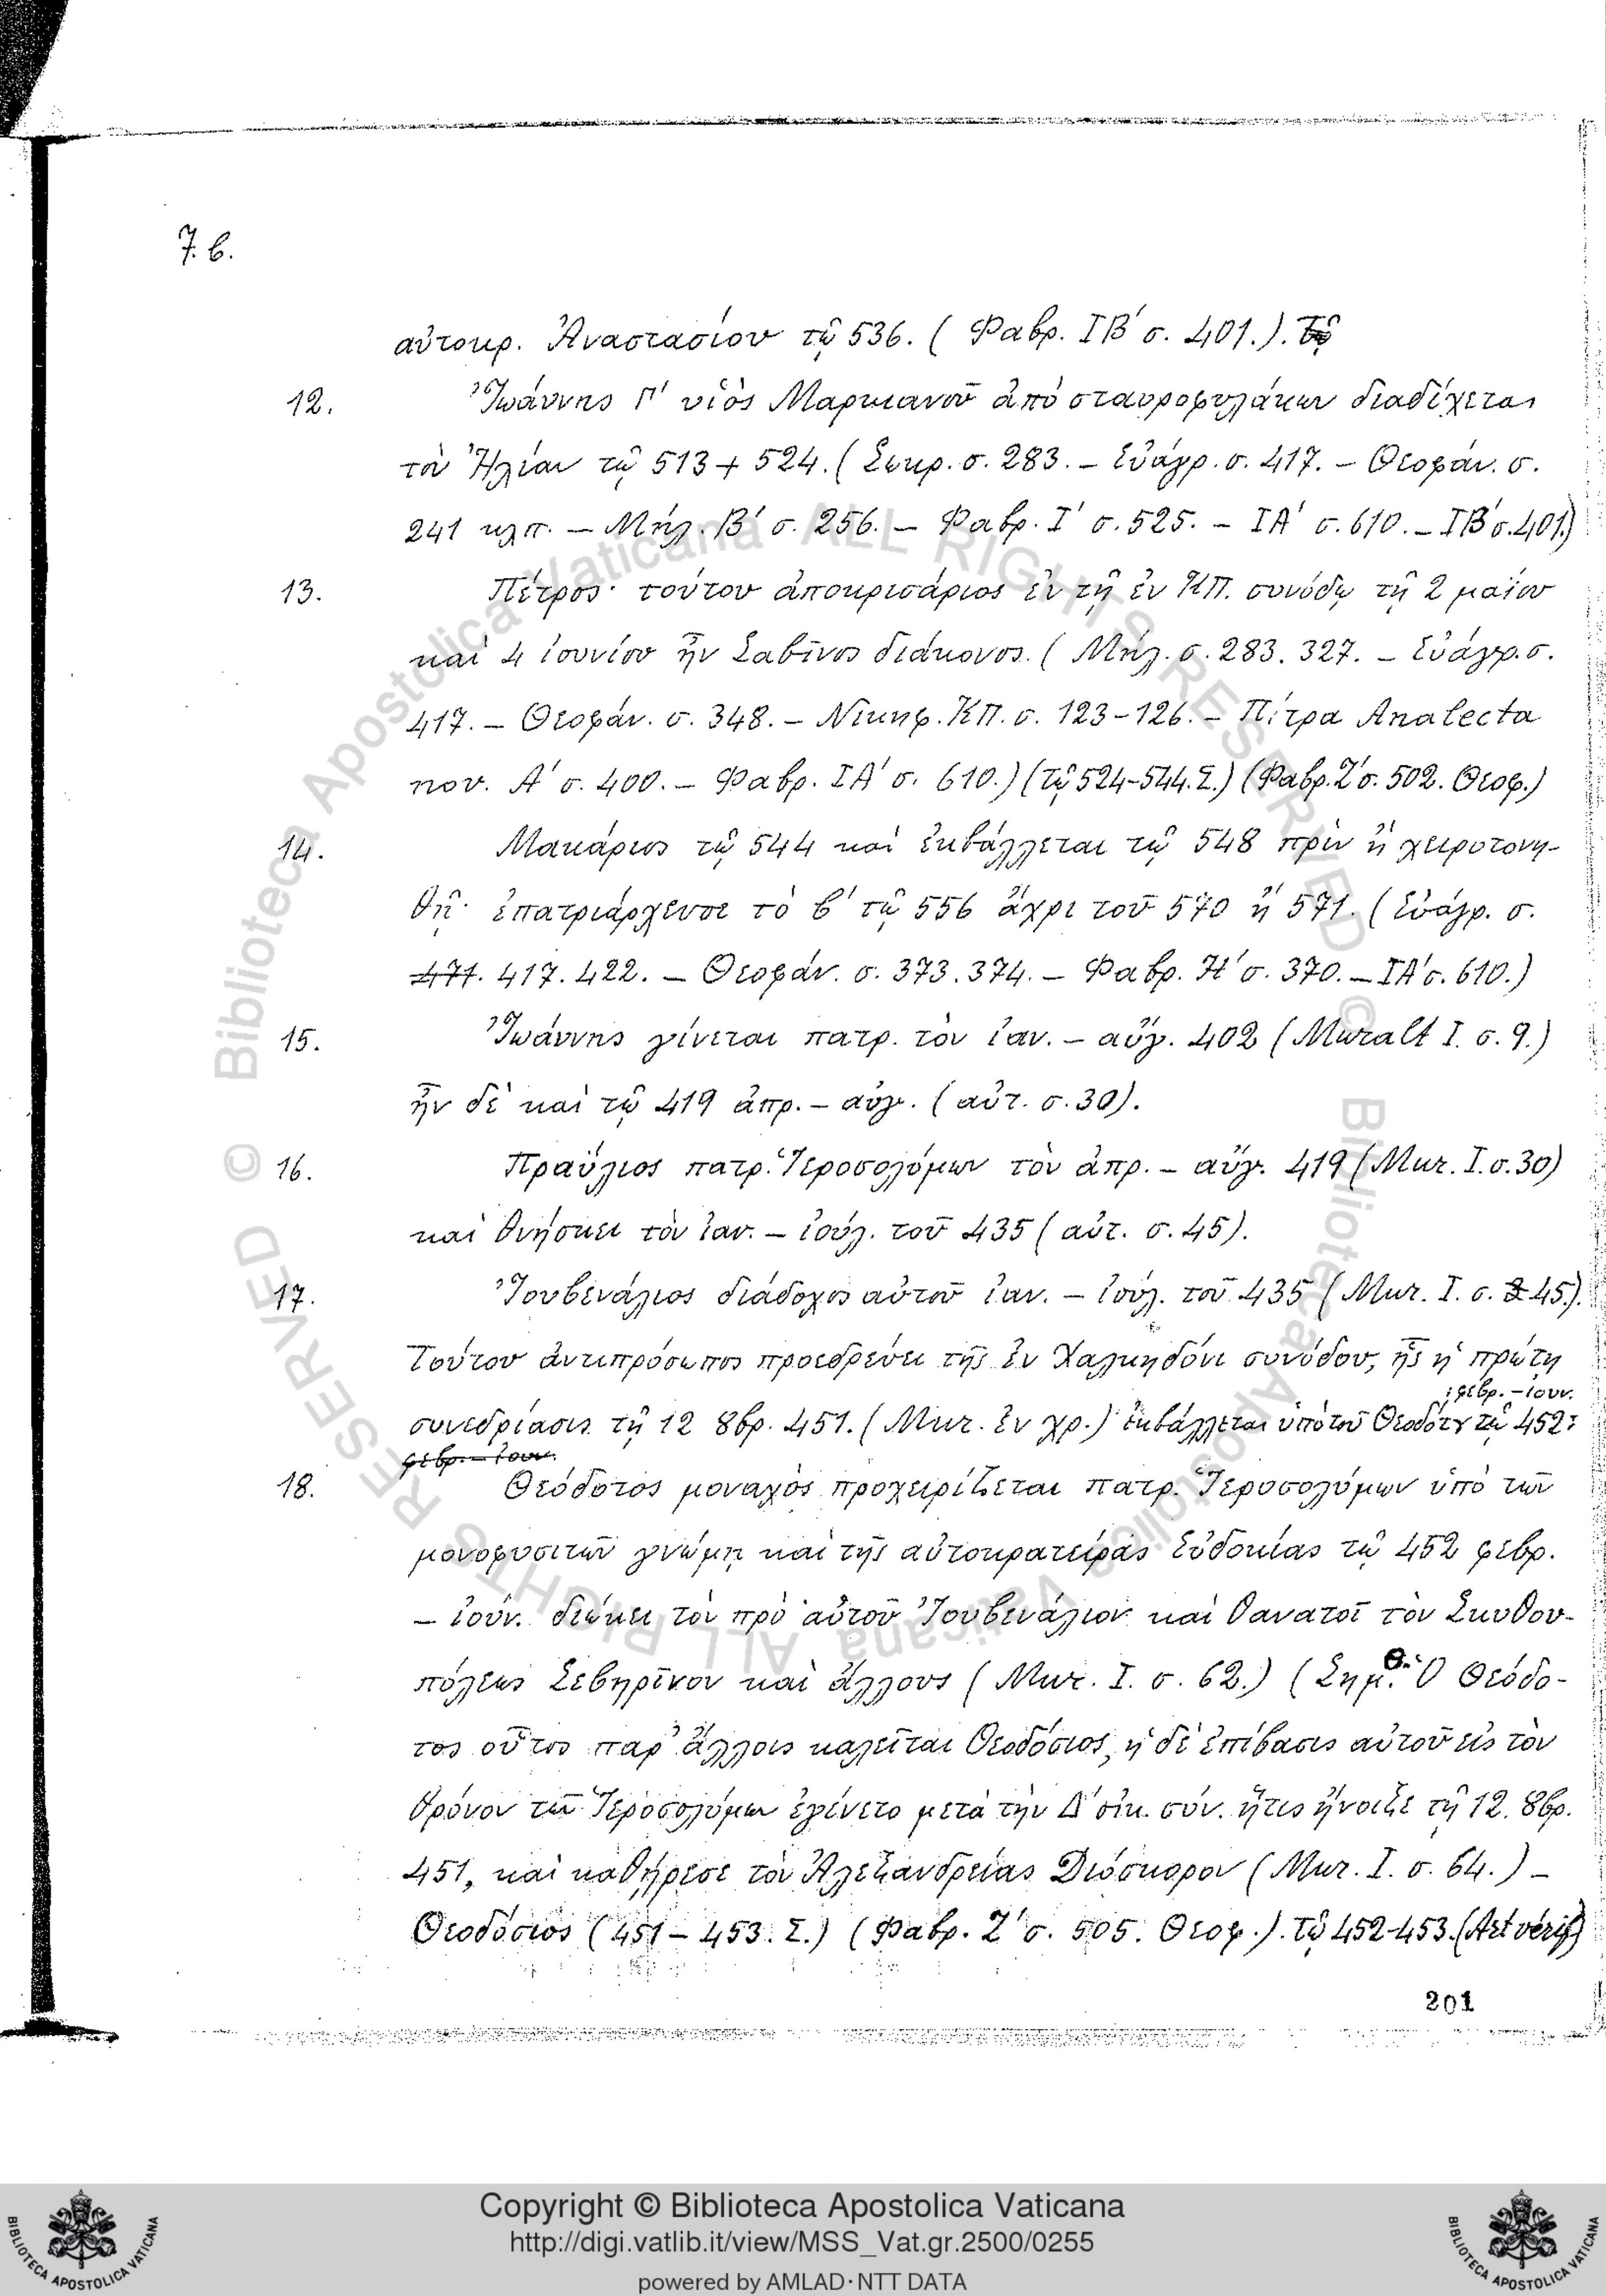 7. β.
αὐτοκρ. Ἀναστασίου τῷ 536. ( Φαβρ. ΙΒ΄ σ. 401.). τῷ
12. Ἰωάννης Γ΄ υἱὸς Μαρκιανοῦ ἀπὸ σταυροφυλάκων διαδέχεται
τὸν Ἠλίαν τῷ 513 + 524. ( Σωκρ. σ. 283. – Εὐάγρ. σ. 417. – Θεοφάν. σ.
241 κλπ. – Μήλ. Β΄ σ. 256. – Φαβρ. Ι΄ σ. 525. – ΙΑ΄ σ. 610. – ΙΒ΄ σ. 401.)
13. Πέτρος· τούτου ἀποκρισάριος ἐν τῇ ἐν ΚΠ. συνόδῳ τῇ 2 μαΐου
καὶ 4 ἰουνίου ἦν Σαβῖνος διάκονος. ( Μήλ. σ. 283. 327. – Εὐάγρ. σ.
417. – Θεοφάν. σ. 348. – Νικηφ. ΚΠ. σ. 123–126. – Πίτρα Analecta
nov. Α΄ σ. 400. – Φαβρ. ΙΑ΄ σ. 610.) (τῷ 524–544. Σ.) (Φαβρ. Ζ΄ σ. 502. Θεοφ.)
14. Μακάριος τῷ 544 καὶ ἐκβάλλεται τῷ 548 πρὶν ἢ χειροτονη-
θῇ· ἐπατριάρχευσε τὸ β΄ τῷ 556 ἄχρι τοῦ 570 ἢ 571. ( Εὐάγρ. σ.
471. 417. 422. – Θεοφάν. σ. 373. 374. – Φαβρ. Η΄ σ. 370. – ΙΑ΄ σ. 610.)
15. Ἰωάννης γίνεται πατρ. τὸν ἰαν. – αὔγ. 402 ( Muralt I. σ. 9.)
ἦν δὲ καὶ τῷ 419 ἀπρ. – αὐγ. ( αὐτ. σ. 30).
16. Πραΰλιος πατρ. Ἱεροσολύμων τὸν ἀπρ. – αὔγ. 419 ( Mur. I. σ. 30)
καὶ θνήσκει τὸν ἰαν. – ἰούλ. τοῦ 435 ( αὐτ. σ. 45).
17. Ἰουβενάλιος διάδοχος αὐτοῦ ἰαν. – ἰούλ. τοῦ 435 ( Mur. I. σ. 45.).
Τούτου ἀντιπρόσωπος προεδρεύει τῆς ἐν Χαλκηδόνι συνόδου, ἧς ἡ πρώτη
: φεβρ. – ἰουν.
συνεδρίασις τῇ 12 8βρ. 451. ( Mur. ἐν χρ.) ἐκβάλλεται ὑπὸ τοῦ Θεοδότου τῷ 452:
φεβρ. – ἰουν.
18. Θεόδοτος μοναχὸς προχειρίζεται πατρ. Ἱεροσολύμων ὑπὸ τῶν
μονοφυσιτῶν γνώμῃ καὶ τῆς αὐτοκρατείρας Εὐδοκίας τῷ 452 φεβρ.
– ἰούν. διώκει τὸν πρὸ αὐτοῦ Ἰουβενάλιον καὶ θανατοῖ τὸν Σκυθου-
πόλεως Σεβηρῖνον καὶ ἄλλους ( Mur. I. σ. 62.) ( Σημ. Ὁ Θεόδο-
τος οὗτος παρ' ἄλλοις καλεῖται Θεοδόσιος, ἡ δὲ ἐπίβασις αὐτοῦ εἰς τὸν
θρόνον τῶν Ἱεροσολύμων ἐγίνετο μετὰ τὴν Δ΄ οἰκ. σύν. ἥτις ἤνοιξε τῇ 12. 8βρ.
451, καὶ καθῄρεσε τὸν Ἀλεξανδρείας Διόσκορον ( Mur. I. σ. 64.) –
Θεοδόσιος ( 451 – 453. Σ.) ( Φαβρ. Ζ΄ σ. 505. Θεοφ.). τῷ 452–453. (Art vérif)
201
© Biblioteca Apostolica Vaticana ALL RIGHTS RESERVED
© Biblioteca Apostolica Vaticana ALL RIGHTS RESERVED
Copyright © Biblioteca Apostolica Vaticana
http://digi.vatlib.it/view/MSS_Vat.gr.2500/0255
powered by AMLAD·NTT DATA
BIBLIOTECA APOSTOLICA VATICANA
BIBLIOTECA APOSTOLICA VATICANA